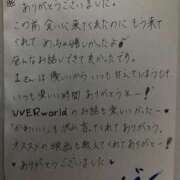 ありがとうございました。
この前 会いに来てくれたのに もう来て
くれて めっちゃ嬉しかったよ
色んなお話しできて良かったです。
いつも楽しい時間 ありがとうー!
UVERworld のお話も楽しかったー
かわいいも沢山 言ってくれてありがとう。
オススメの映画も教えてくれてありがとー!
ありがとうございました